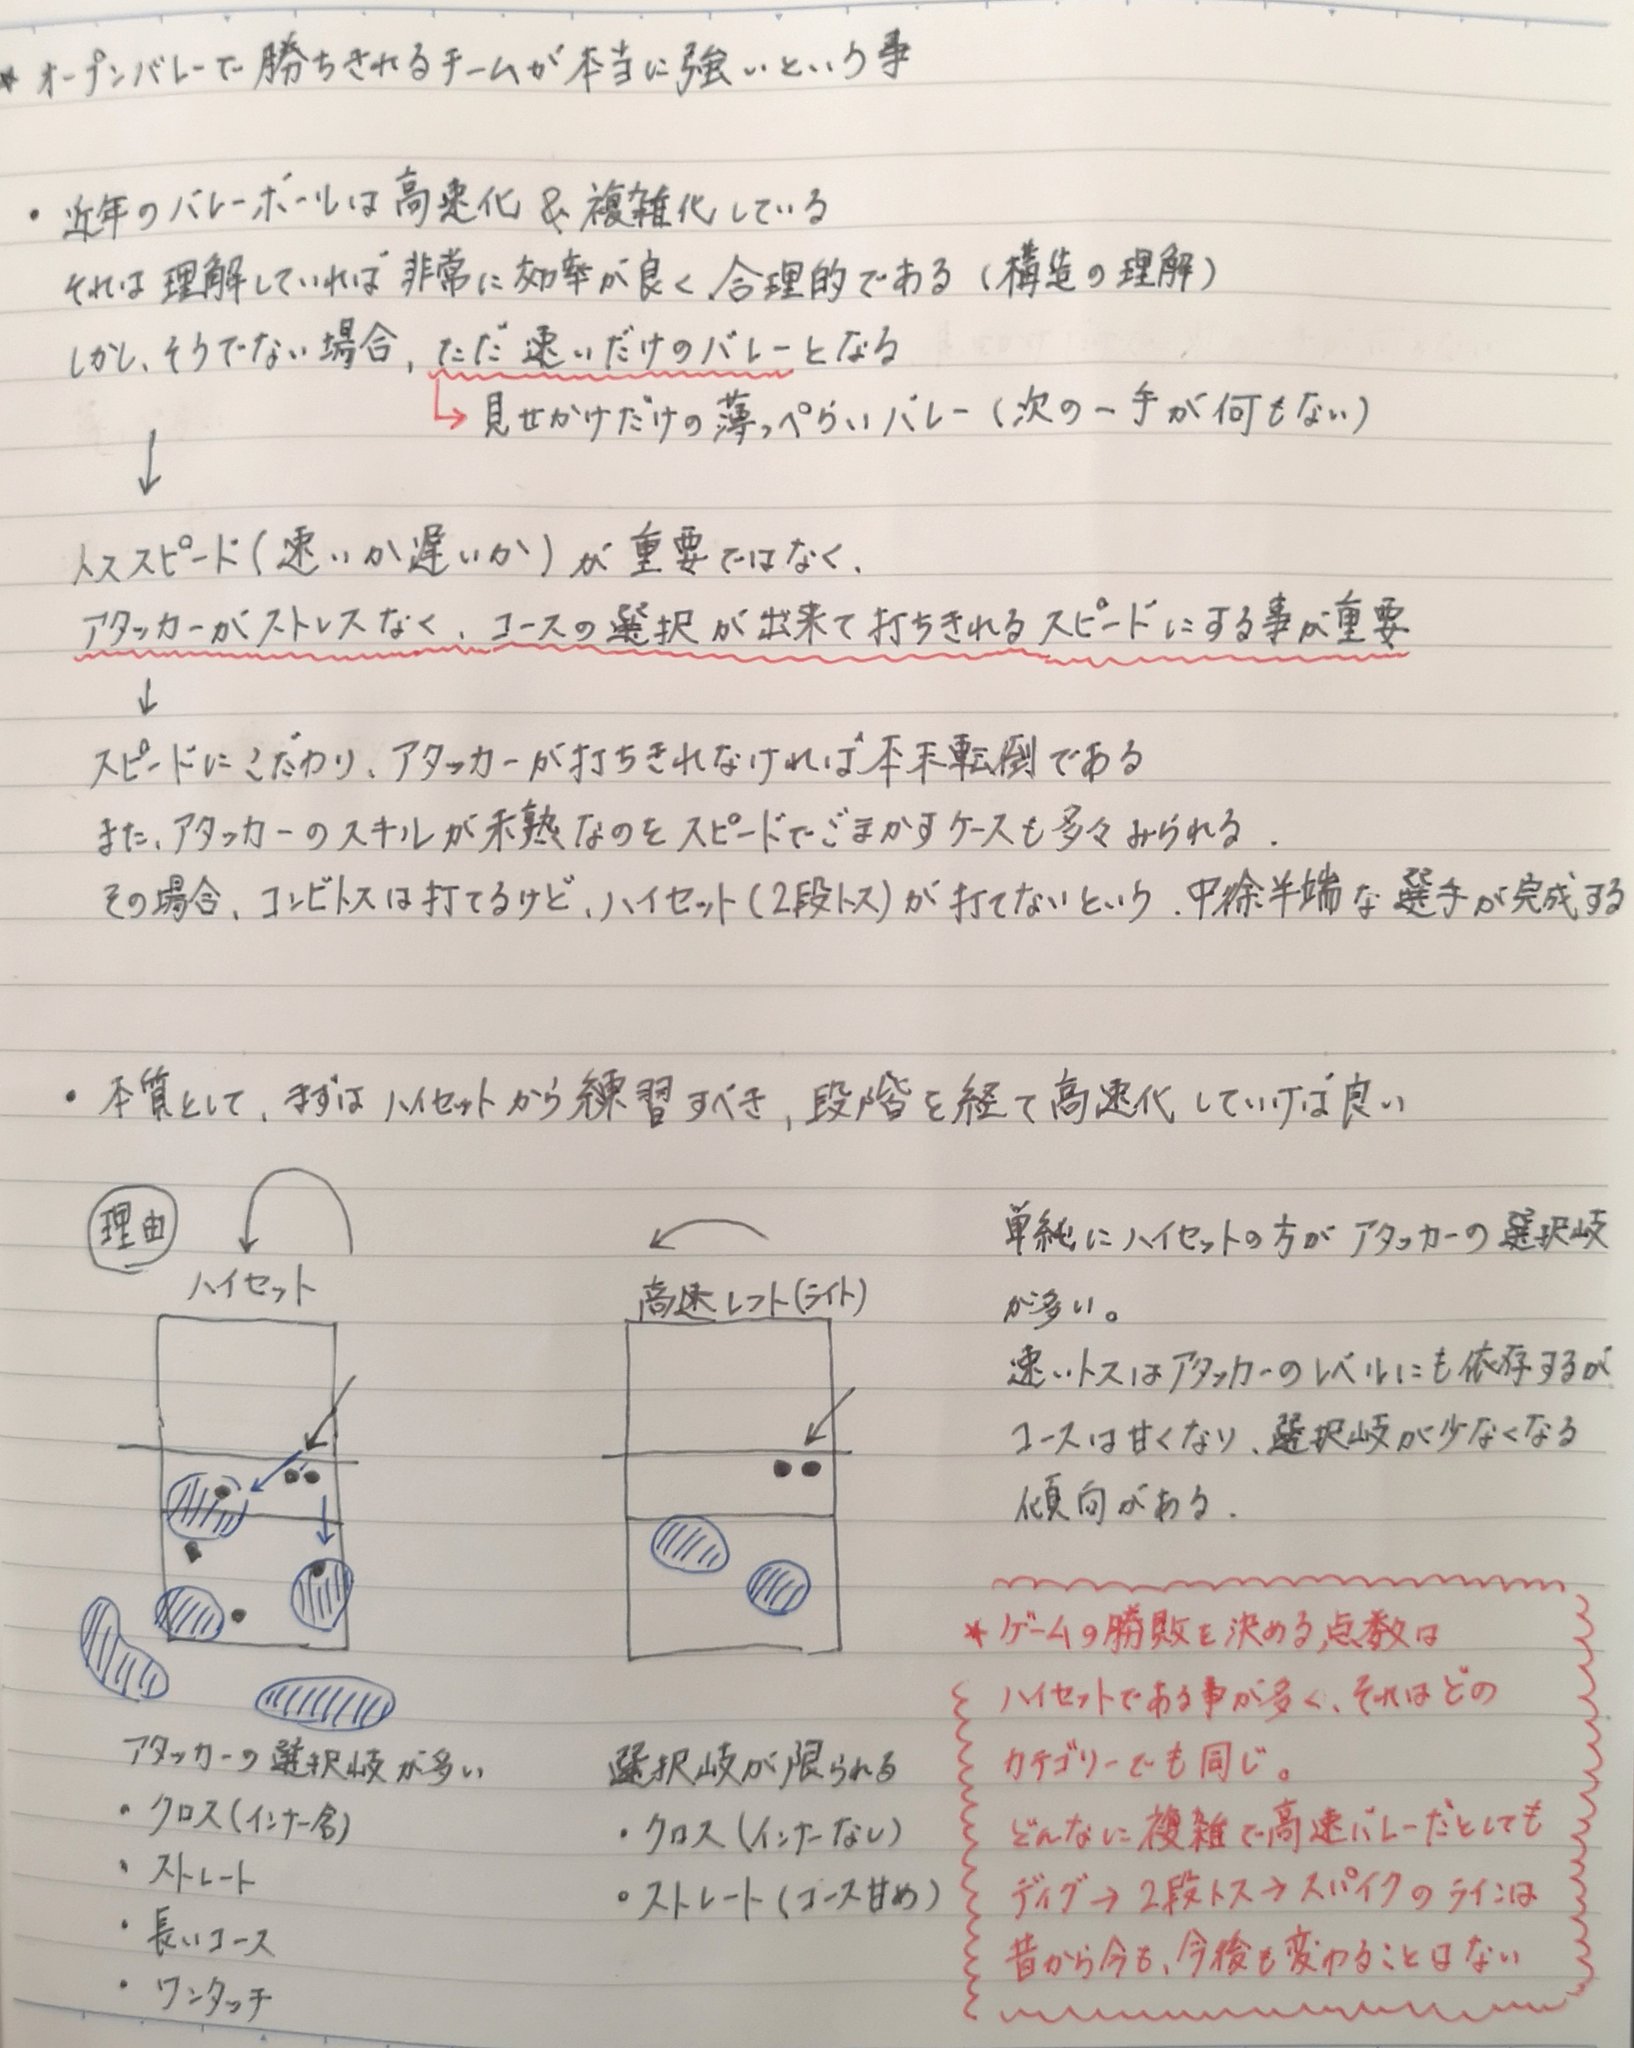 * オープンバレーで勝ちきれるチームが本当に強いという事
・近年のバレーボールは高速化&複雑化している
それは理解していれば非常に効率が良く、合理的である(構造の理解)
しかし、そうでない場合、ただ速いだけのバレーとなる
↳ 見せかけだけの薄っぺらいバレー(次の一手が何もない)
↓
トススピード(速いか遅いか)が重要ではなく、
アタッカーがストレスなく、コースの選択が出来て打ちきれるスピードにする事が重要
↓
スピードにこだわり、アタッカーが打ちきれなければ本末転倒である
また、アタッカーのスキルが未熟なのをスピードでごまかすケースも多々みられる.
その場合、コンビトスは打てるけど、ハイセット(2段トス)が打てないという、中途半端な選手が完成する
・本質として、まずはハイセットから練習すべき、段階を経て高速化していけば良い
理由
ハイセット
アタッカーの選択岐が多い
・クロス(インナー含)
・ストレート
・長いコース
・ワンタッチ
高速レフト(ライト)
選択岐が限られる
・クロス(インナーなし)
・ストレート(コース甘め)
単純にハイセットの方がアタッカーの選択岐
が多い。
速いトスはアタッカーのレベルにも依存するが
コースは甘くなり、選択岐が少なくなる
傾向がある.
* ゲームの勝敗を決める点数は
ハイセットである事が多く、それはどの
カテゴリーでも同じ。
どんなに複雑で高速バレーだとしても
ディグ→2段トス→スパイクのラインは
昔から今も、今後も変わることはない